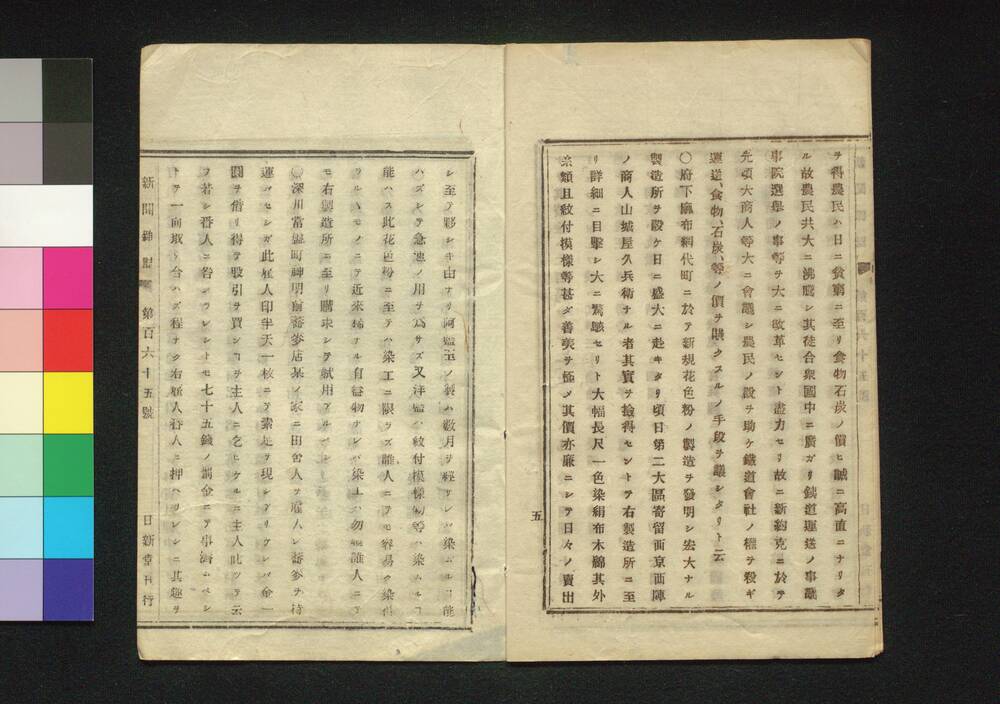 ヲ得農民ハ日ニ貧窮ニ至リ食物石炭ノ價ヒ誠ニ高直ニナリタ
ル故農民共大ニ沸騰シ其徒合衆國中ニ廣ガリ鉄道運送ノ事議
事院選擧ノ事等ヲ大ニ改革セント盡力セリ故ニ新約克ニ於テ
先頃大商人等大ニ會議シ農民ノ説ヲ助ケ鐵道會社ノ權ヲ殺ギ
運送、食物、石炭、等ノ價ヲ賤クスルノ手段ヲ議シタリト云
〇府下麻布網代町ニ於テ新規花色粉ノ製造ヲ發明シ宏大ナル
製造所ヲ設ケ日ニ盛大ニ赴キタリ頃日第二大區寄留西京西陣
ノ商人山城屋久兵衛ナル者其實ヲ撿得セントテ右製造所ニ至
リ詳細ニ目擊シ大ニ驚駭セリト大幅長尺一色染絹布木綿其外
糸類且紋付摸樣等甚ダ善美ヲ極メ其價亦廉ニシテ日々ノ賣出
五
シ至テ夥シキ由ナリ阿藍玉ノ製ハ數月ヲ經サレハ染ムルヿ能
ハズシテ急速ノ用ヲ爲サズ又洋藍ハ紋付摸樣物等ハ染ムルヿ
能ハス此花色粉ニ至テハ染工ニ限ラズ誰人ニテモ容易ク染得
ラルヽモノニテ近來稀ナル有益物ナレバ染工ハ勿論誰人ニテ
モ右製造所ニ至リ購求シテ試用アルベシ
〇深川富町神明前蕎麥店某ノ家ニ田舍人ヲ雇入レ蕎麥ヲ持
運バセシガ此雇人印半天一枚ニテ素足ヲ現シアリケレバ金一
圓ヲ借リ得テ股引ヲ買ンヿヲ主人ニ乞ヒケルニ主人叱ツテ云
フ若シ番人ニ咎メラレントモ七十五錢ノ罰金ニテ事濟ムベシ
トテ一向取リ合ハズ程ナク右雇人番人ニ押ヘラレシニ其趣ヲ
新聞雜誌 第百六十五號 日新堂刊行